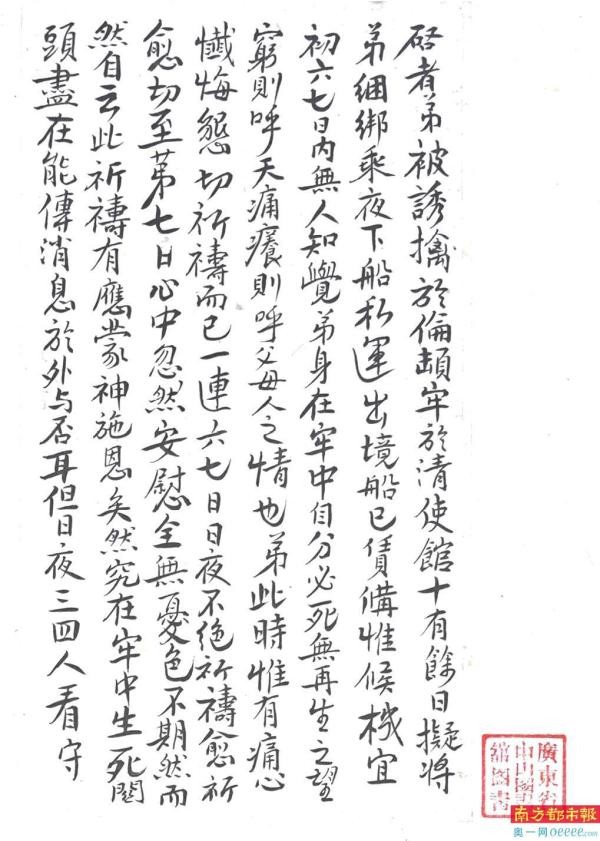 啓者弟被誘擒於倫頓牢於清使館十有餘日擬將
弟綑綁乘夜下船私運出境船已賃備惟候機宜
初六七日內無人知覺弟身在牢中自分必死無再生之望
窮則呼天痛癢則呼父母人之情也弟此時惟有痛心
懺悔懇切祈禱而已一連六七日日夜不絕祈禱愈祈
愈切至第七日心中忽然安慰全無憂色不期然而
然自云此祈禱有應蒙神施恩矣然究在牢中生死關
頭盡在能傳消息於外与否耳但日夜三四人看守
廣東省
中山圖
館圖書
南方都市報
奥一网oeeee.com